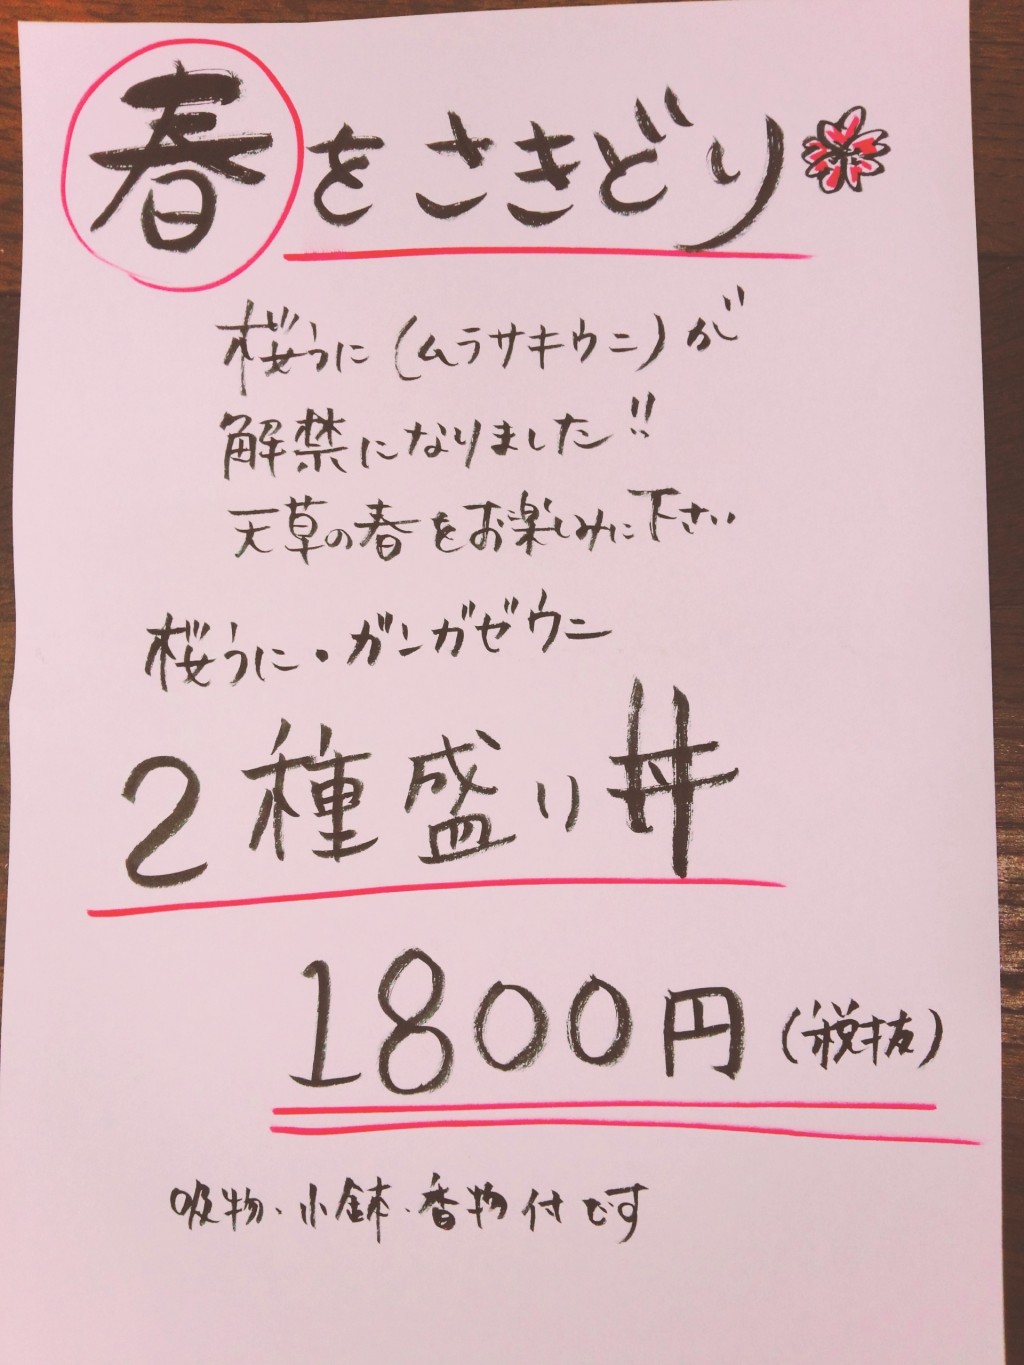 春をさきどり
桜うに(ムラサキウニ)が
解禁になりました!!
天草の春をお楽しみに下さい
桜うに・ガンガゼウニ
2種盛り丼
1800円(税抜)
吸物・小鉢・香物付です